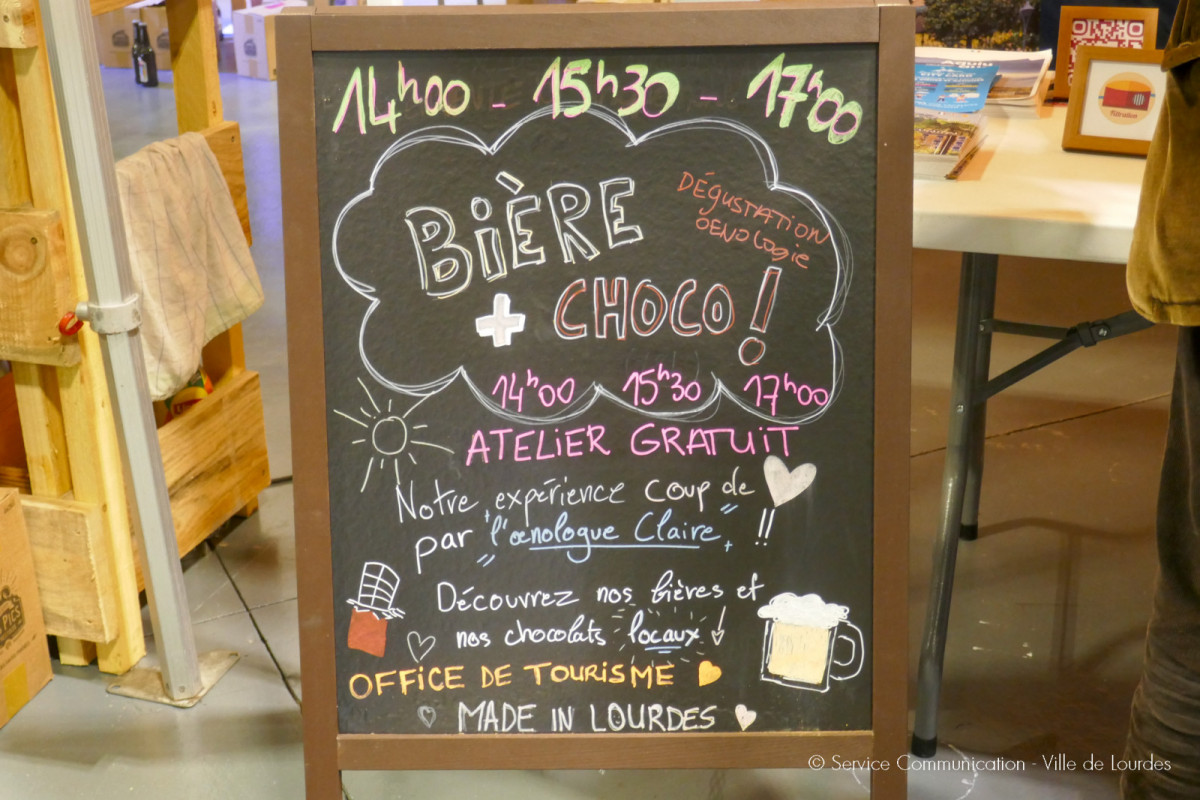 14h00 - 15h30 - 17h00
BIÈRE
DÉGUSTATION
OENOLOGIE
+ CHOCO !
14h00 15h30 17h00
ATELIER GRATUIT
Notre expérience coup de
par "l'œnologue Claire" !!
Découvrez nos bières et
nos chocolats locaux
OFFICE DE TOURISME
MADE IN LOURDES
© Service Communication - Ville de Lourdes